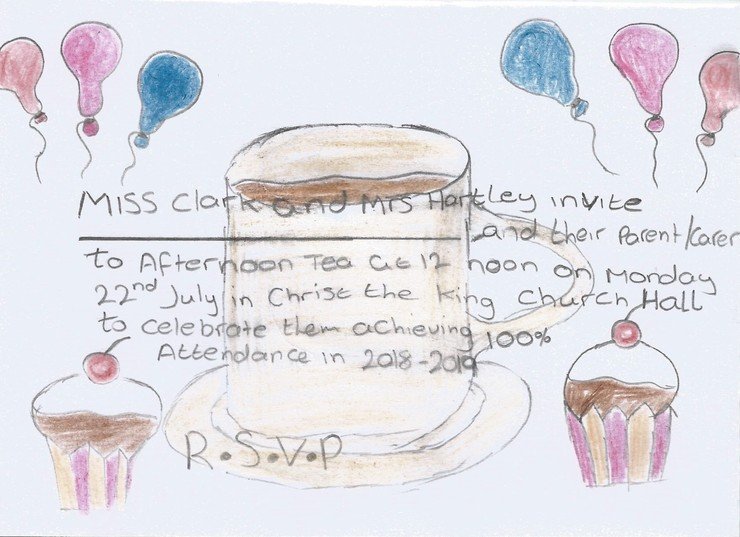 Miss Clark and Mrs Hartley invite
and their Parent/Carer
to Afternoon Tea at 12 noon on Monday
22nd July in Christ the King Church Hall
to celebrate them achieving 100%
Attendance in 2018-2019
R.S.V.P